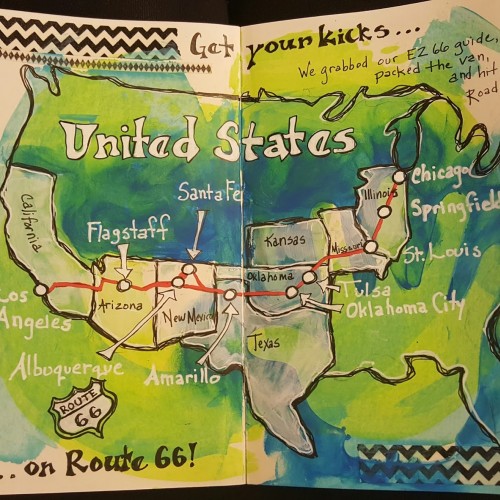 Get your kicks...
We grabbed our EZ 66 guide,
packed the van,
and hit
Road
United States
Chicago
Illinois
Springfield
Santa Fe
California
Flagstaff
Kansas
Missouri
St. Louis
Oklahoma
Tulsa
Los
Angeles
Arizona
New Mexico
Oklahoma City
Texas
Albuquerque
Amarillo
ROUTE
66
...on Route 66!